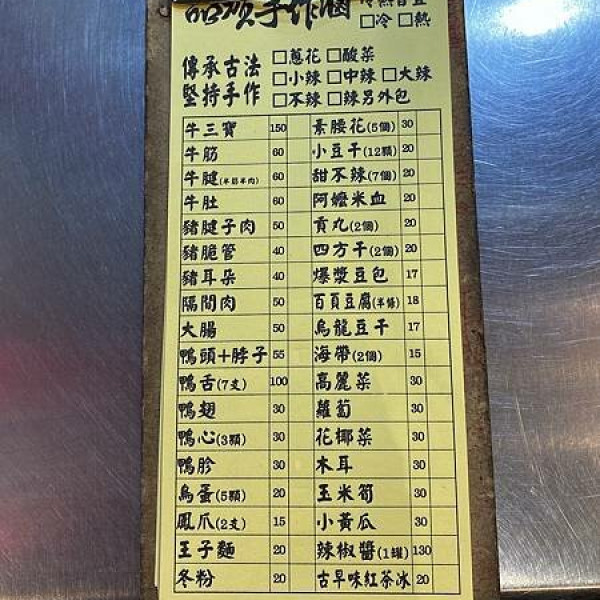 手作滷
□冷 □熱
傳承古法 □蔥花□酸菜
堅持手作 □小辣□中辣□大辣
□不辣□辣另外包
牛三寶 150 素腰花(5個) 30
牛筋 60 小豆干(12顆) 20
牛腱(半筋半肉) 60 甜不辣(7個) 20
牛肚 60 阿嬤米血 20
豬腱子肉 50 貢丸(2個) 20
豬脆管 40 四方干(2個) 20
豬耳朵 40 爆漿豆包 17
隔間肉 50 百頁豆腐(半條) 18
大腸 50 烏龍豆干 17
鴨頭+脖子 55 海帶(2個) 15
鴨舌(7支) 100 高麗菜 30
鴨翅 30 蘿蔔 30
鴨心(3顆) 30 花椰菜 30
鴨胗 30 木耳 30
鳥蛋(5顆) 20 玉米筍 30
鳳爪(2支) 15 小黃瓜 30
王子麵 20 辣椒醬(1罐) 130
冬粉 20 古早味紅茶冰 20